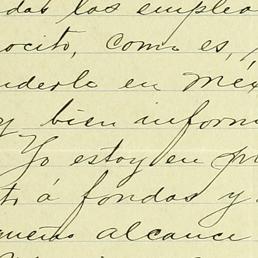 das los emplea
nocito, como es,
nderlo en Méx
y bien inform
Yo estoy en
to á fondos y
queños alcance